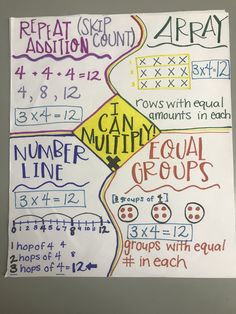 REPEAT (SKIP
ADDITION COUNT)
4 + 4 + 4 = 12
4, 8, 12
3 x 4 = 12
ARRAY
1 x x x x
2 x x x x
3 x x x x
3x4=12
rows with equal
amounts in each
I
CAN
MULTIPLY!
X
NUMBER
LINE
3 x 4 = 12
0 1 2 3 4 5 6 7 8 9 10 11 12
1 hop of 4 4
2 hops of 4 8
3 hops of 4 = 12
EQUAL
GROUPS
[3 groups of 4]
3 x 4 = 12
groups with equal
# in each